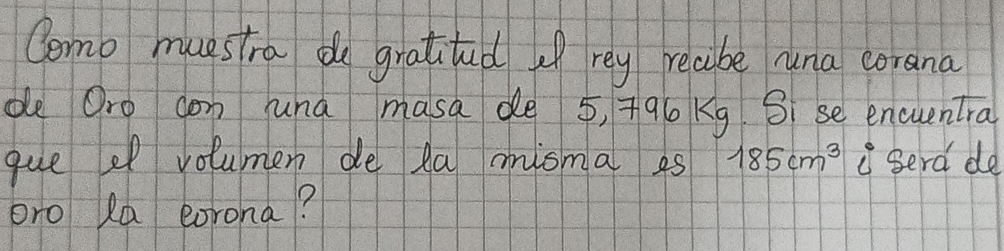 Como muestra de gratitud el rey recibe una corana
de Oro con una masa de 5,796 Kg. Si se encuentra
que el volumen de la misma es 185 cm³ ¿ Será de
oro la corona?